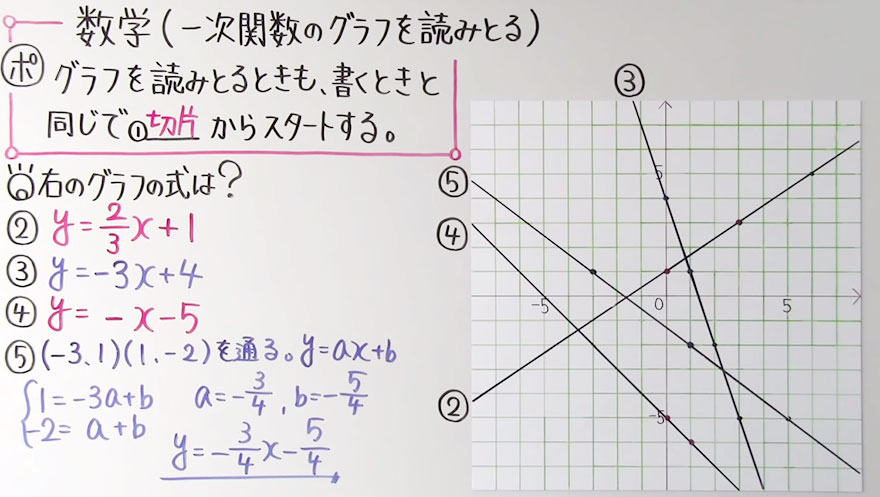 数学(一次関数のグラフを読みとる)
ポ グラフを読みとるときも、書くときと
同じで①切片からスタートする。
問右のグラフの式は?
② y=2/3x+1
③ y=-3x+4
④ y=-x-5
⑤ (-3、1)(1、-2)を通る。y=ax+b
1=-3a+b a=-3/4, b=-5/4
-2=a+b
y=-3/4x-5/4
③
5
⑤
④
-5 0 5
②
-5